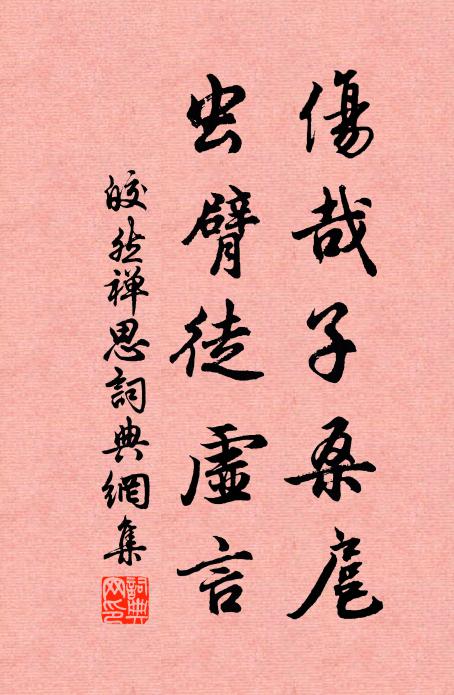 傷哉子桑扈
虫臂徒虛言
皎然禅思詞典網集
詞典网印